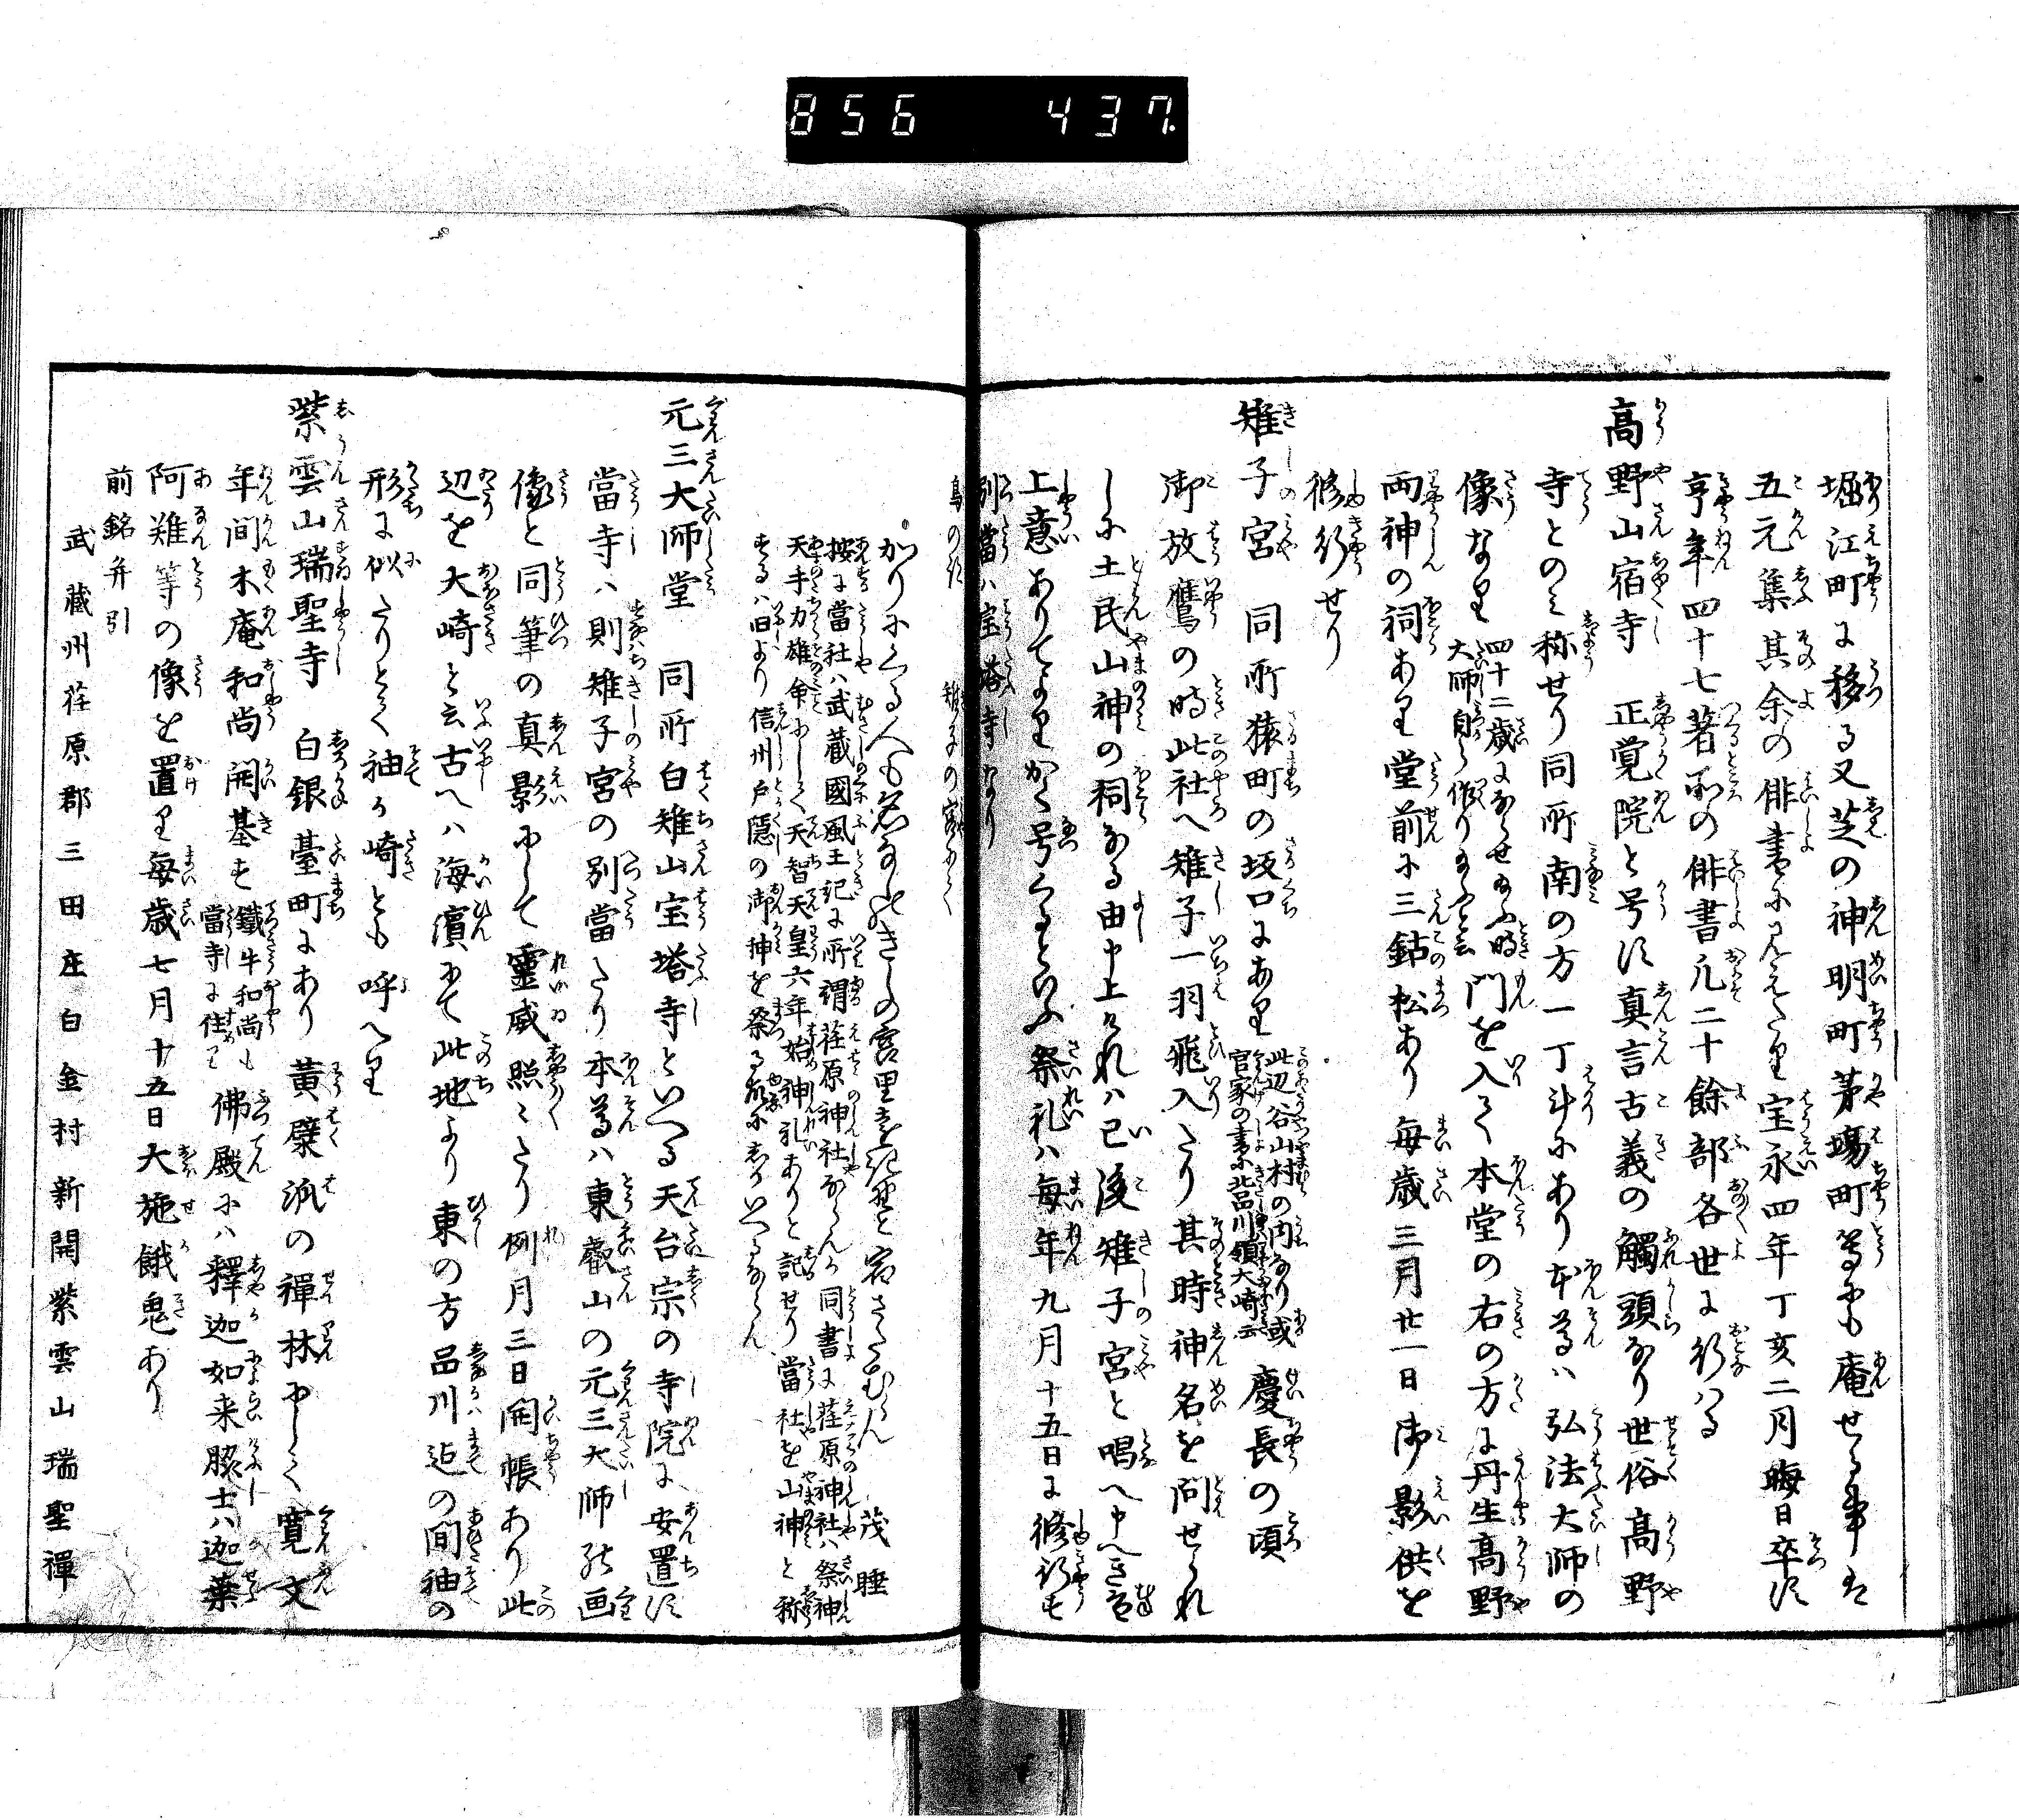 856 437
堀江町に移る又芝の神明町茅場町等にも庵せる事は
五元集其余の俳書にみえたり宝永四年丁亥二月晦日卒す
享年四十七著所の俳書凡二十餘部各世に行はる
高野山宿寺 正覚院と号す真言古義の觸頭なり世俗高野
寺とのミ称せり同所南の方一丁斗にあり本尊ハ弘法大師の
像なり 四十二歳になせ給ふ時
大師自ら作り給ふと云 門を入て本堂の右の方に丹生高野
両神の祠あり堂前に三鈷松あり毎歳三月廿一日御影供を
修行せり
雉子宮 同所猿町の坂口にあり 此辺谷山村の内なり或
官家の書に北品川領大崎云 慶長の頃
御放鷹の時此社へ雉子一羽飛入たり其時神名を問せられ
しに土民山神の祠なる由申上けれハ已後雉子宮と唱へ申へき旨
上意ありてより かく号くるといふ祭礼ハ毎年九月十五日に修行す
別當ハ宝塔寺なり
かりにくる人も名なのきしの宮 里 と宿さためむ 茂睡
按に當社ハ武蔵國風土記に所謂荏原神社ならんか同書に荏原神社ハ祭神
天手力雄命にして天智天皇六年始神礼ありと記せり當社を山神と称
するハ旧より信州戸隱の御神を祭る故にしかいへるならん
元三大師堂 同所白雉山宝塔寺といへる天台宗の寺院に安置す
當寺ハ則雉子宮の別當たり本尊ハ東叡山の元三大師の画
像と同筆の真影にして靈威照々たり例月三日開帳あり此
辺を大崎と云古へハ海濱にて此地より東の方品川迄の間袖の
形に似たりとて袖ヶ崎とも呼へり
紫雲山瑞聖寺 白銀臺町にあり黄檗派の禪林にして寛文
年間木庵和尚開基す 鐵牛和尚も
當寺に住せり 佛殿にハ釋迦如来脇士ハ迦葉
阿難等の像を置り毎歳七月十五日大施餓鬼あり
前銘并引
武蔵州荏原郡三田庄白金村新開紫雲山瑞聖禪